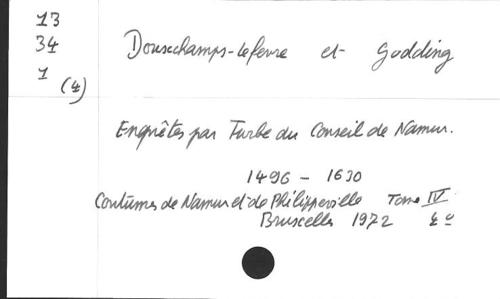 13
34
1
(4)
Douxchamps-Lefevre et Godding
Enquêtes par Turbe du Conseil de Namur.
1496 - 1630
Coutumes de Namur et de Philippeville Tome IV
Bruxelles 1972 4°